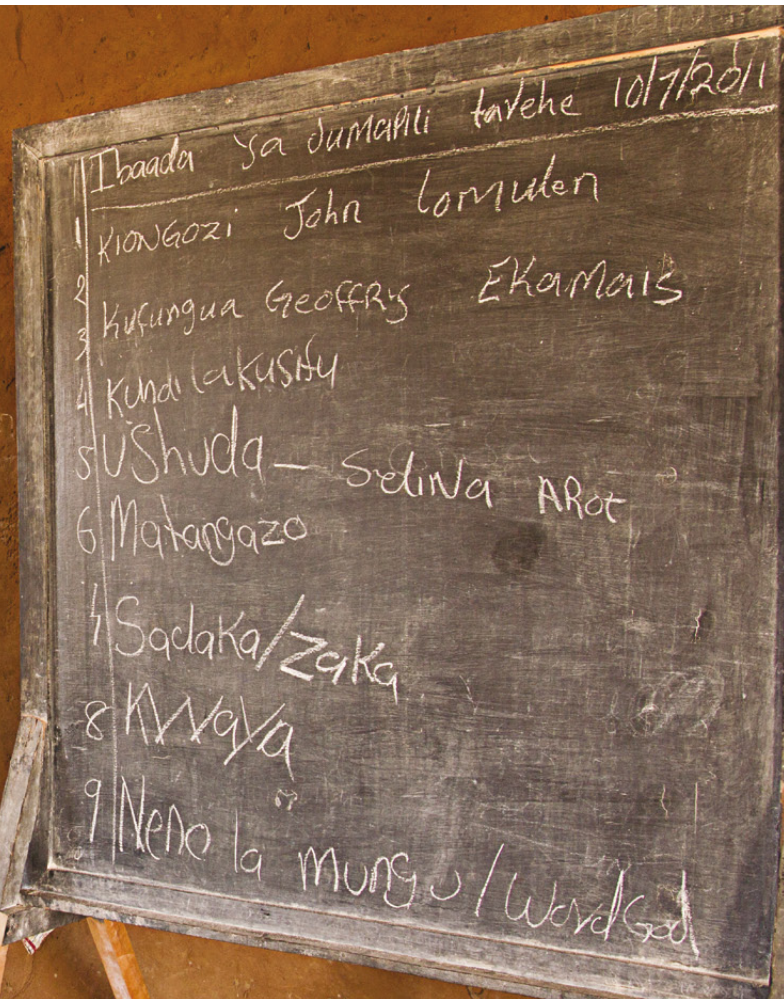 Ibaada ya Jumapili tarehe 10/7/2011
1 KIONGOZI John Lomulen
2
3 Kufungua GEOFFRY EKaMais
4 Kundi la KUSifu
5 UShuda — SeliNa ARot
6 Matangazo
7 Sadaka/Zaka
8 KWaya
9 Neno la Mungu / Word God